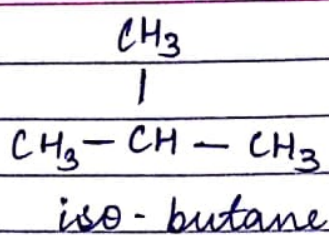 CH3
|
CH3 — CH — CH3
iso - butane